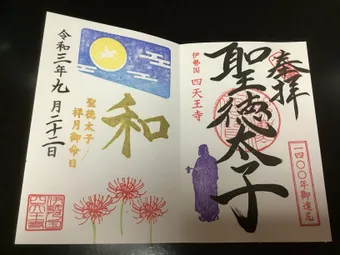 奉拝
伊勢国 四天王寺
聖徳太子
一四〇〇年御遠忌
和
聖徳太子
祥月御命日
令和三年九月二十二日